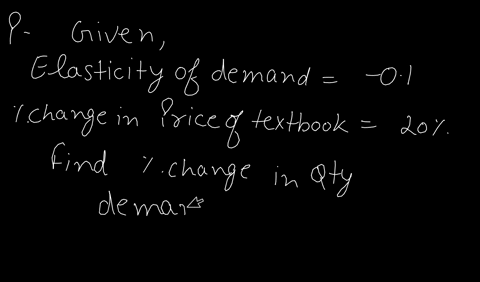 P- Given,
Elasticity of demand = -0.1
%change in Price of textbook = 20%.
find %.change in Qty
deman